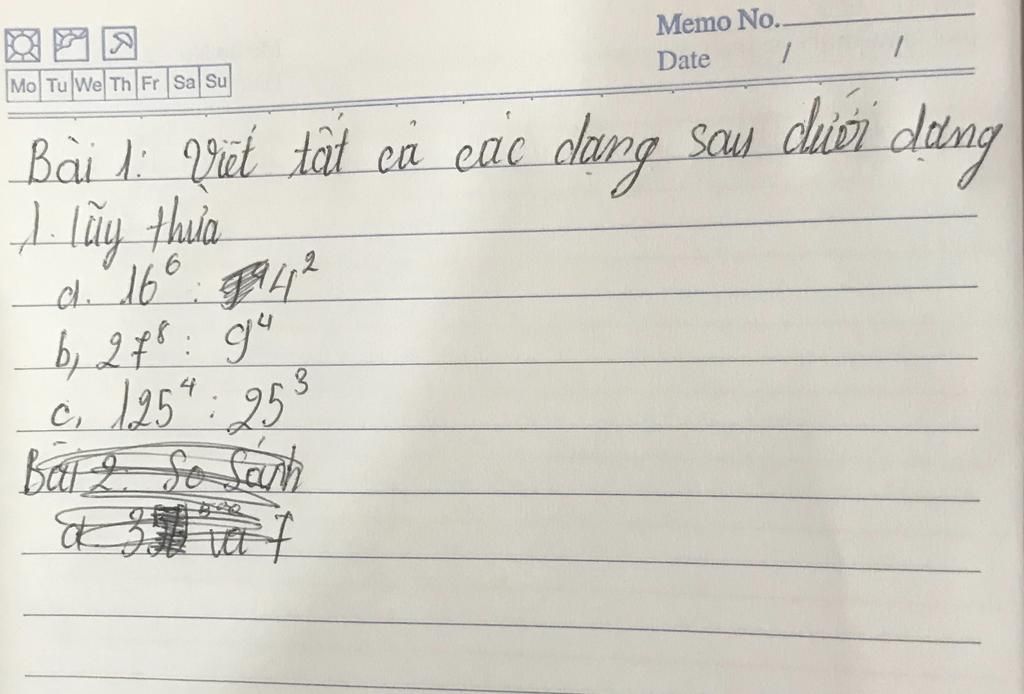 Memo No.
Date / /
Mo Tu We Th Fr Sa Su
Bài 1: Viết tất cả các dạng sau dưới dạng
1. lũy thừa
a. 16⁶ : 4²
b, 27⁸ : 9⁴
c, 125⁴ : 25³
Bài 2. So Sánh
a 3 và 7